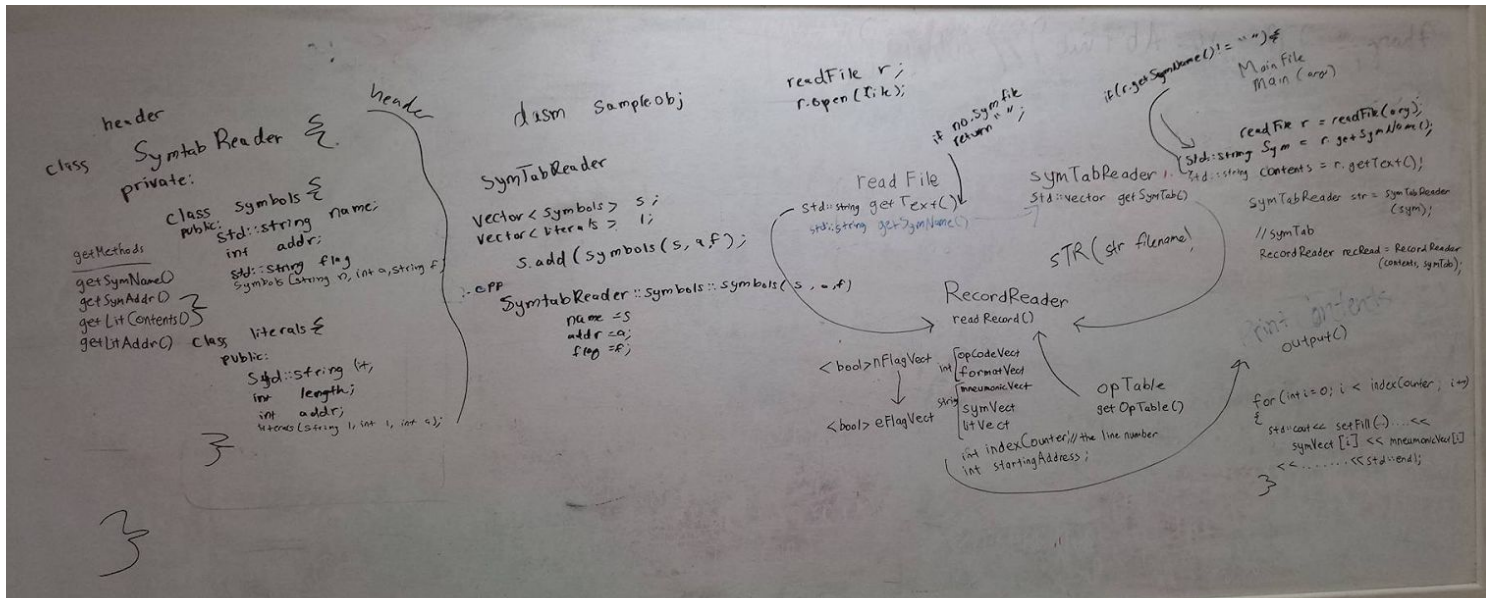 header
class SymtabReader {
private:
class symbols {
public:
std::string name;
int addr;
std::string flag
symbols (string n, int a, string f)
}
getMethods
getSymName()
getSymAddr()
getLitContents()
getLitAddr()
class literals {
public:
std::string lit,
int length;
int addr;
literals (string l, int l, int a);
}
}
header
dasm sample.obj
SymTabReader
vector<symbols> s;
vector<literals> l;
s.add(symbols(s, a, f);
.cpp
SymtabReader::symbols::symbols(s, a, f)
name = s
addr = a;
flag = f;
readFile r;
r.open(file);
if no .sym file
return "";
read File
std::string getText()
std::string getSymName()
symTabReader
std::vector getSymTab()
STR(str filename)
RecordReader
readRecord()
<bool>nFlagVect
<bool>eFlagVect
int
opCodeVect
formatVect
string
mneumonicVect
symVect
litVect
int indexCounter; // the line number
int startingAddress;
opTable
get OpTable()
if(r.getSymName() != "") {
Main File
Main (arg)
readFile r = readFile(arg);
std::string Sym = r.getSymName();
std::string contents = r.getText();
SymTabReader str = symTabReader
(sym);
// symTab
RecordReader recRead = RecordReader
(contents, symTab);
output()
for (int i=0; i < indexCounter; i++)
{
std::cout << setFill(..)....<<
symVect[i] << mneumonicVect[i]
<<........<<std::endl;
}